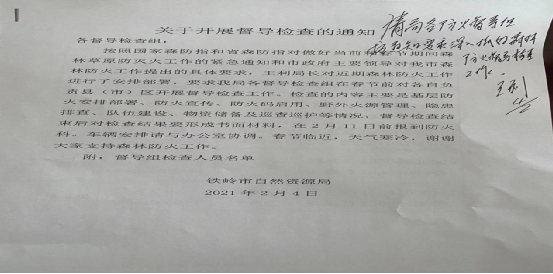 关于开展督导检查的通知
各督导检查组：
按照国家森防指和省森防指对做好当前和春节期间森
林草原防灭火工作的紧急通知和市政府主要领导对我市森
林防火工作提出的具体要求，王利局长对近期森林防火工作
进行了安排部署，要求我局各督导检查组在春节前对各自负
责县（市）区开展督导检查工作。检查的内容主要是基层防
火安排部署、防火宣传、防火码启用、野外火源管理、隐患
排查、队伍建设、物资储备及巡查巡护等情况，督导检查结
束后对检查结果要形成书面材料，在2月11日前报到防火
科。车辆安排请与办公室协调。春节临近，天气寒冷，谢谢
大家支持森林防火工作。
附：督导组检查人员名单
铁岭市自然资源局
2021年2月4日
请局各防火督查组
工作。